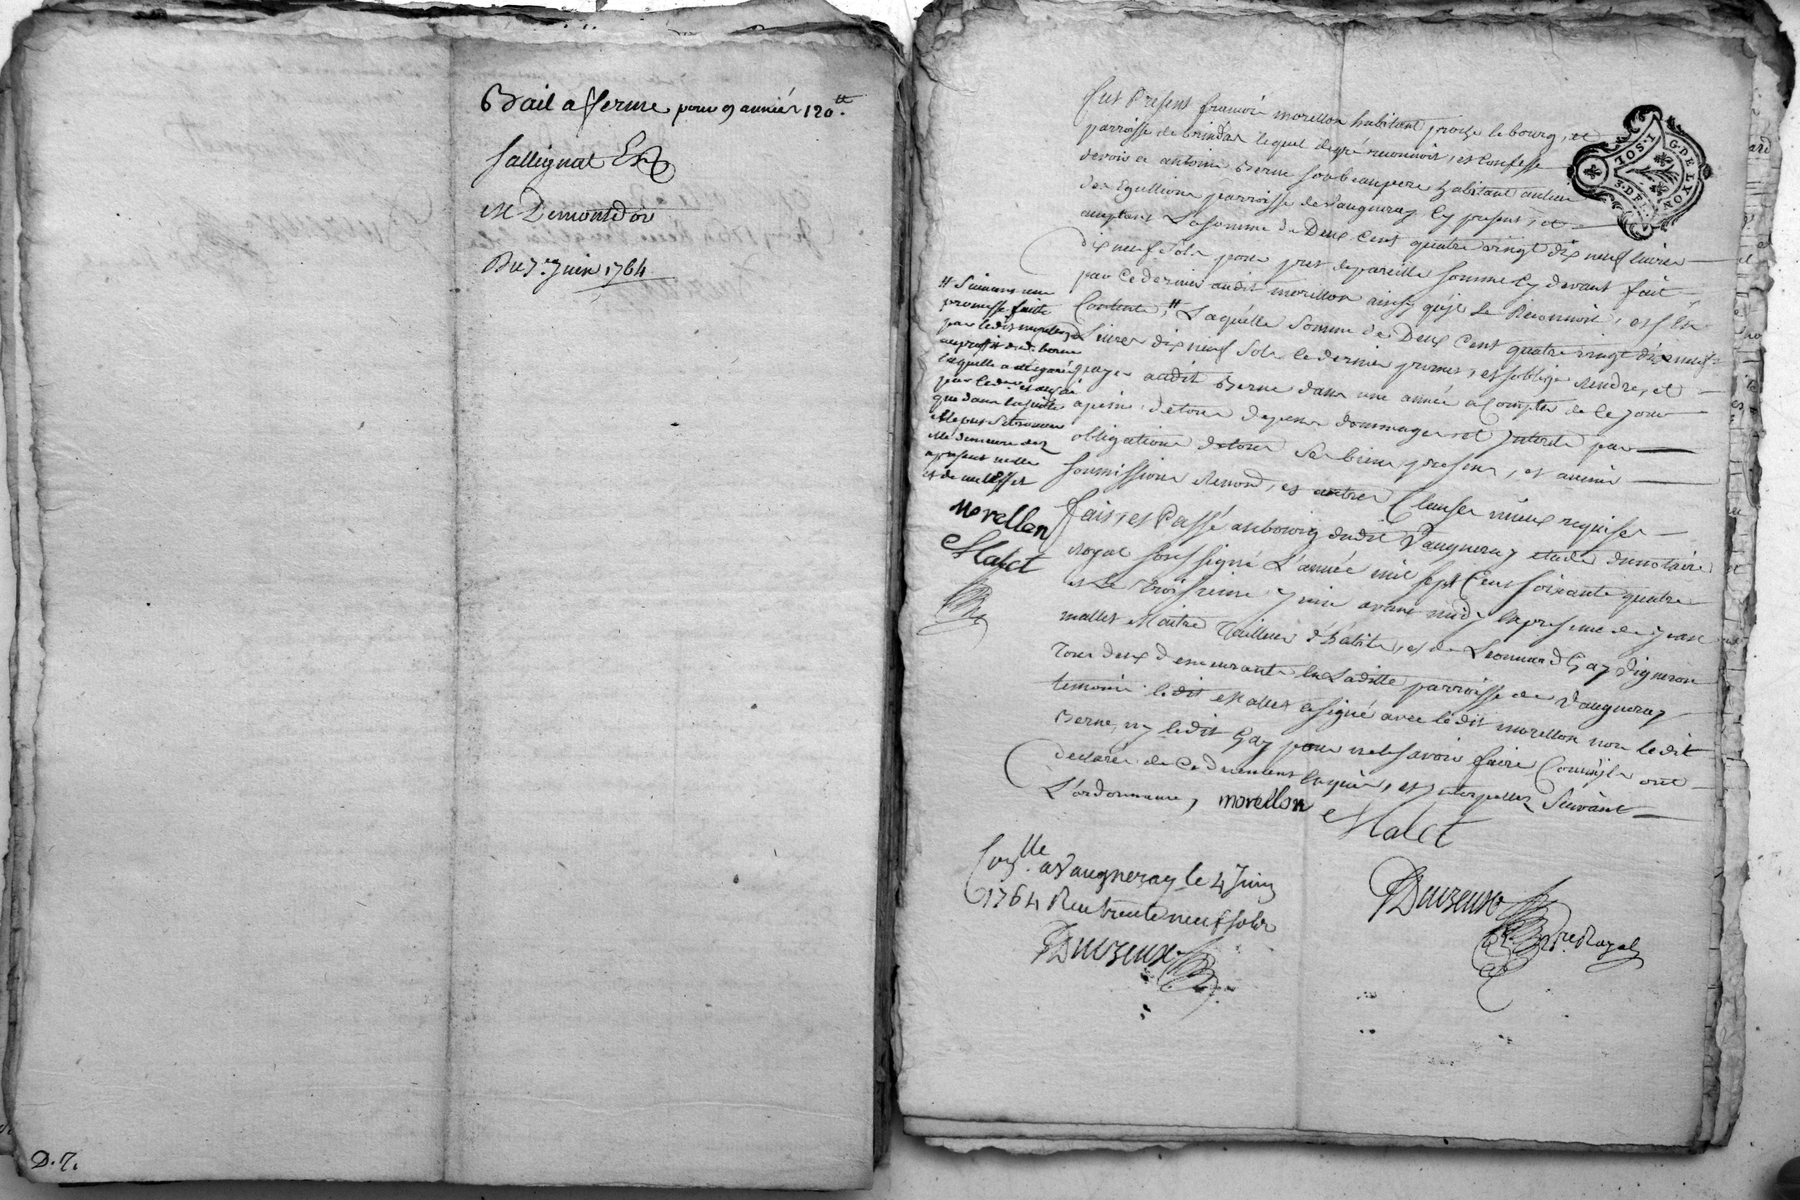 Bail a fferme pour 9 années 120ᵗᵗ.
Sallignat
et Demontdor
Du 7.e Juin 1764
D. 7.
Fut Present françois morellon habitant proche le bourg, et
parroisse de brindas lequel degré reconnoit, et Confesse
devoir a antoine Berne son beaupere habitant au lieu
des Eguillions parroisse de Vaugneray Cy present, et
acceptant La somme de Deux Cent quatre vingt dix neuf livres
dix neuf sols pour pret de pareille somme Cy devant fait
par Ce dernier audit morellon ainsy qu'il Le Reconnoit, et s'en
Contente, # Laquelle Somme de Deux Cent quatre vingt dix neuf
Livres dix neuf sols le dernier promet, et s'oblige Rendre, et
payer audit Berne dans une année a Compter de Ce jour
a peine de tous depens dommages et Interets par
obligations de tous ses biens presens, et avenir
soumissions Renon, et autres Clauses mieux requises
fait, et Passé au bourg dudit Vaugneray etude du notaire
Royal soussigné L'année mil sept Cent soixante quatre
et Le troisieme Juin avant midy En presence de jean
mallet Maitre Tailleur d'habits, et de Leonnard Gay Vigneron
tous deux demeurants En Laditte parroisse de Vaugneray
temoins ledit Mallet a signé avec ledit morellon non ledit
Berne, ny ledit Gay pour ne le savoir faire Comm'ils ont
declaré de Ce duement Enquis, et interpellez Suivant
L'ordonnance, morellon
Malet
# Suivant une
promesse faite
par ledit morellon
au proffit dud. berne
laquelle a eté egarée
que dans la suitte
Elle put se trouver
elle demeure des
a present nulle
et de nul Effet
Morellon
Malet
I.SOL
G.DE LYON
Conlle a Vaugneray le 4 Juin
1764 Reçu trente neuf sols
Duizeux
Duizeux
Nre Royal